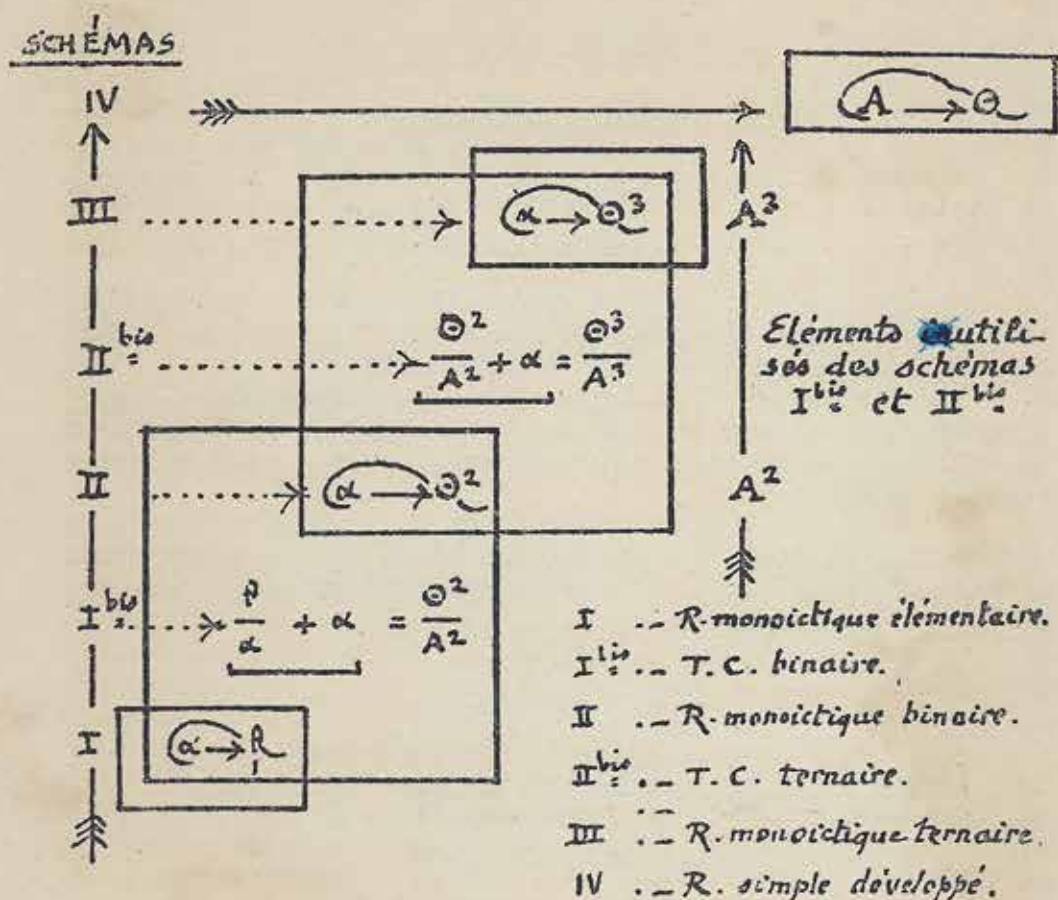 SCHÉMAS
IV A → Θ
III α → Θ³ A³
II bis Θ²/A² + α = Θ³/A³
Elémento inutili-
sés des schémas
I bis et II bis
II α → Θ² A²
I bis ρ/α + α = Θ²/A²
I α → R
I .- R. monoictique élémentaire.
I bis .- T. C. binaire.
II .- R. monoictique binaire.
II bis .- T. C. ternaire.
III .- R. monoictique ternaire.
IV .- R. simple développé.